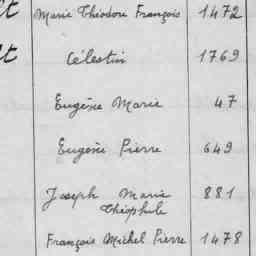 lt Marie Théodore François 1472
lt Célestin 1769
Eugène Marie 47
Eugène Pierre 649
Joseph Marie 881
Théophile
François Michel Pierre 1478